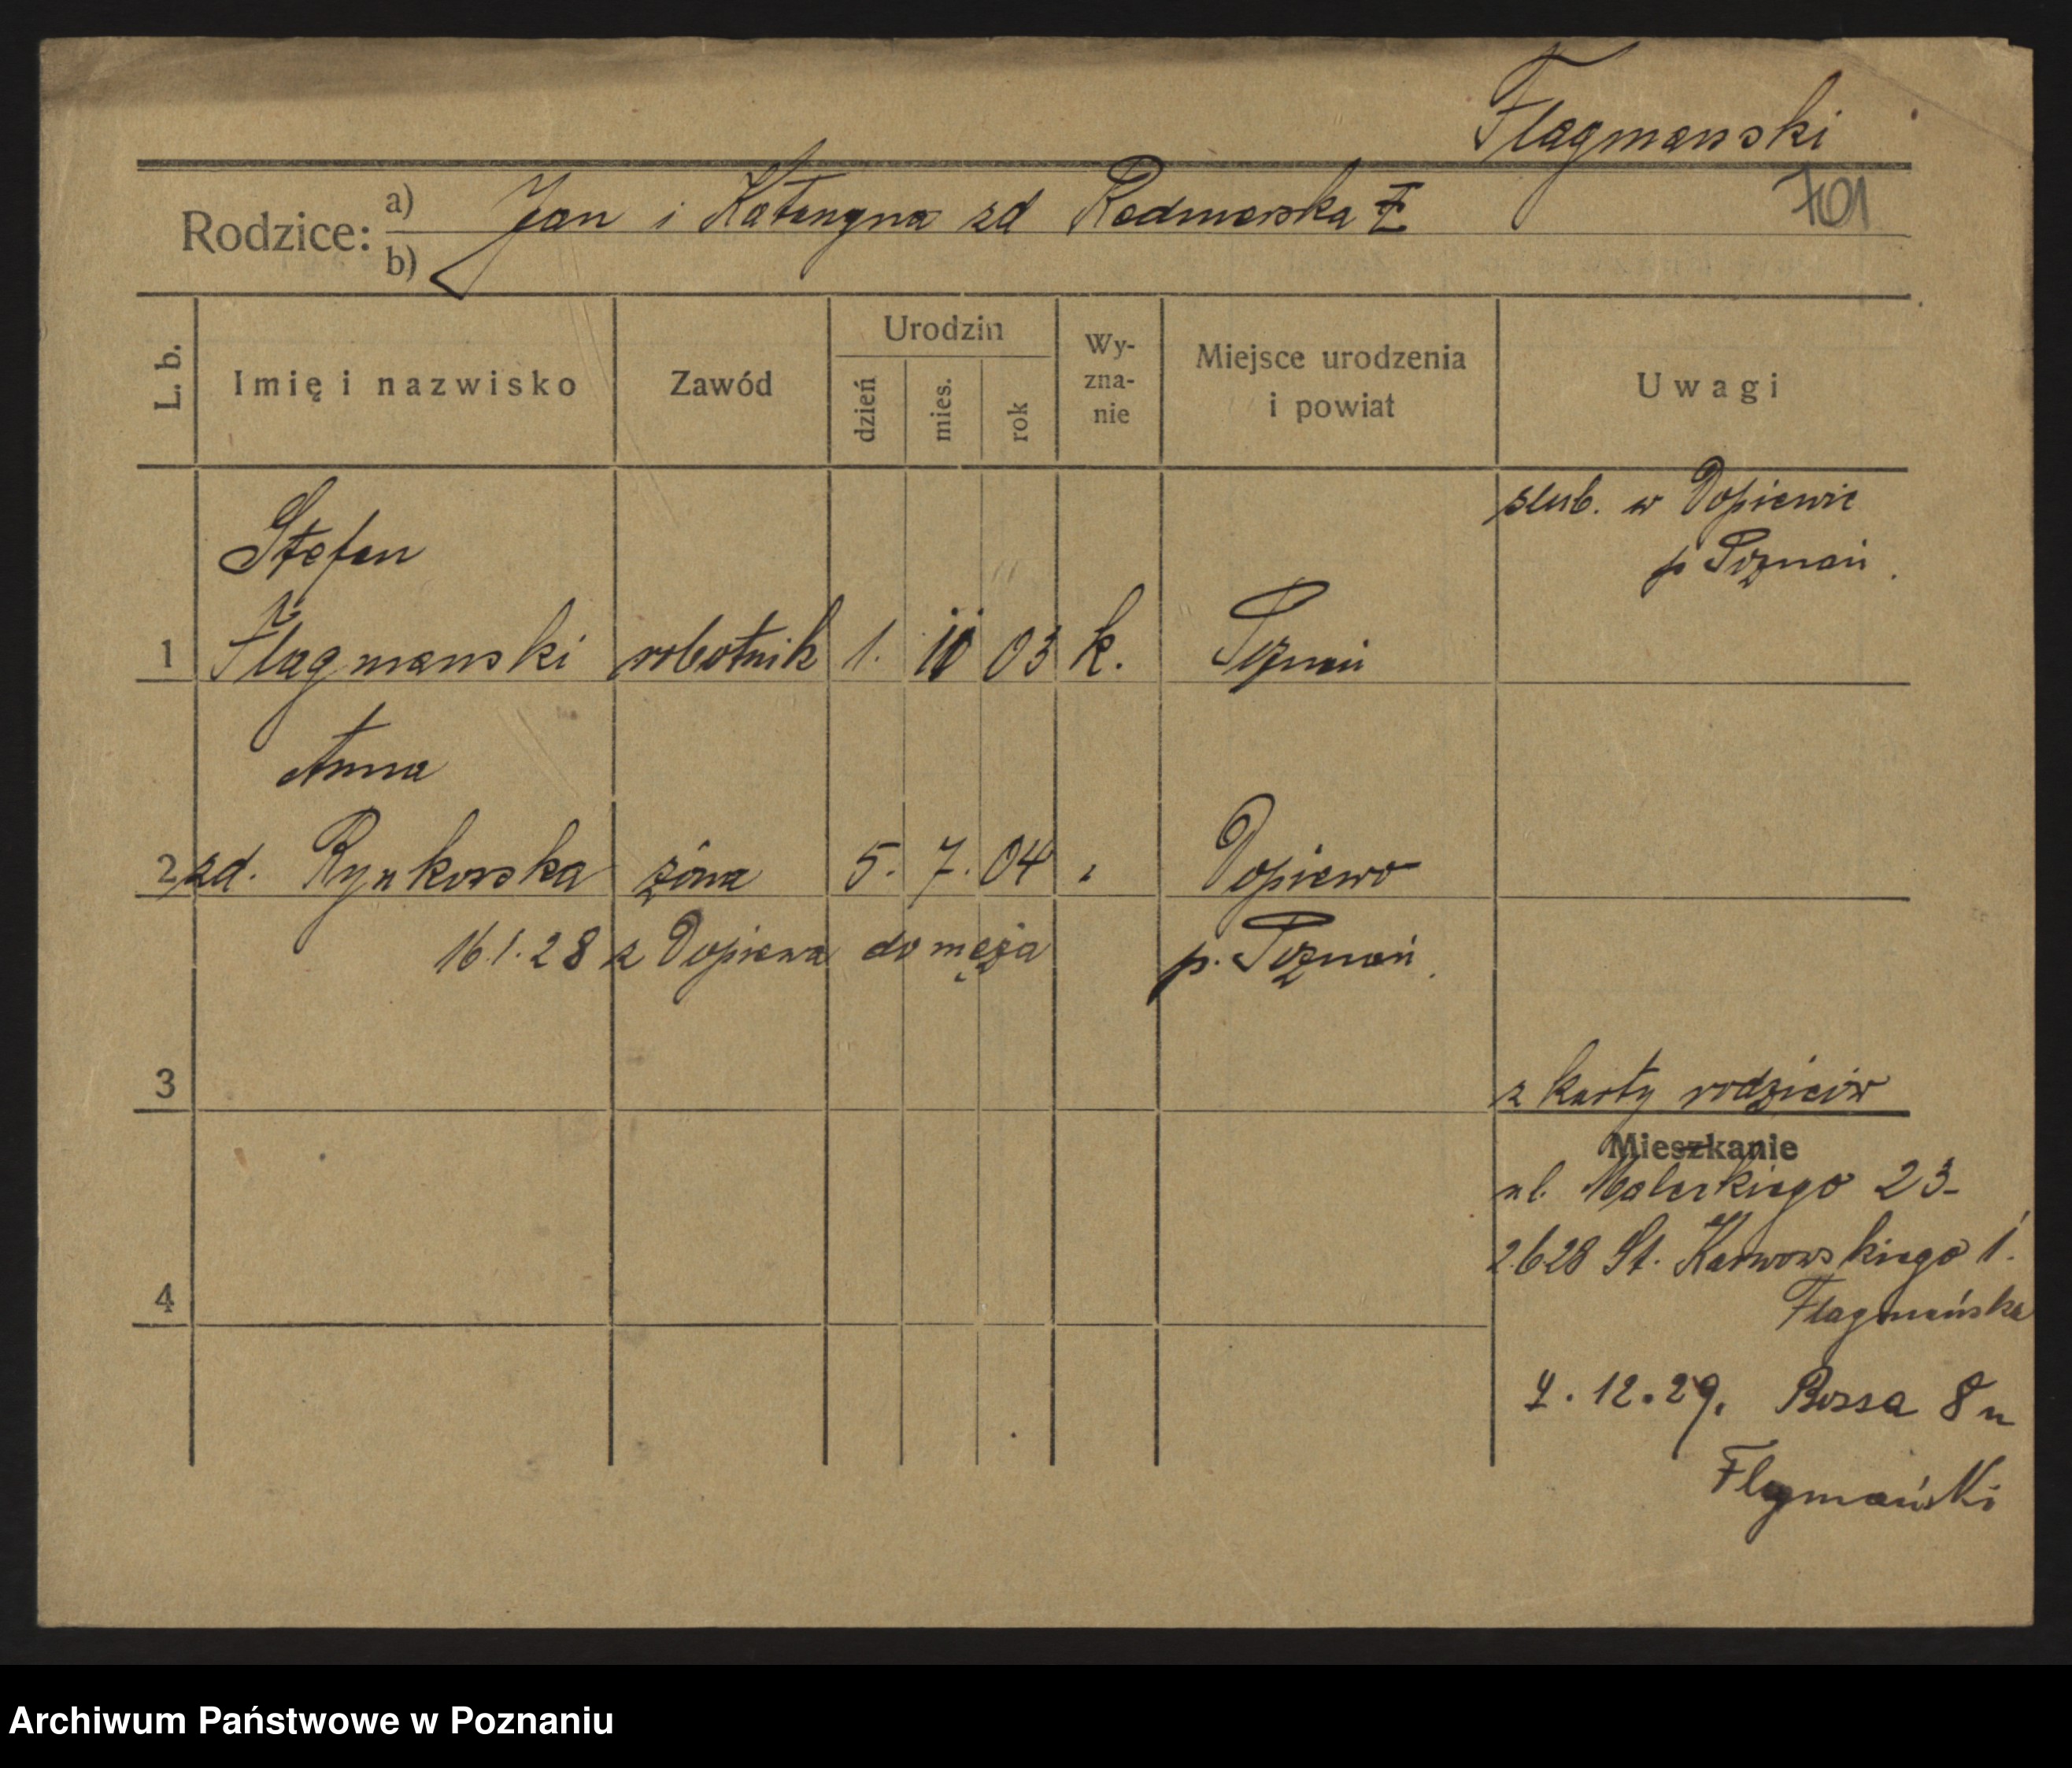 Flagmanski
701
Rodzice: a) Jan i Katarzyna zd Radmerska
b)
L. b. Imię i nazwisko Zawód Urodzin dzień mies. rok Wy-zna-nie Miejsce urodzenia i powiat Uwagi
slub. w Dopiewie
p Poznań.
Stefan
1 Flagmanski robotnik 1. 03 k. Poznań
Anna
2 zd. Rynkowska żona 5. 7. 04 Dopiewo
16.1.28 z Dopiewa do męża p. Poznań.
3 z karty rodziców
Mieszkanie
ul. Maleckiego 23-
2.6.28 St. Karwowskiego 1.
4 Flagmańska
12.29. Bossa 8
Flagmański
Archiwum Państwowe w Poznaniu